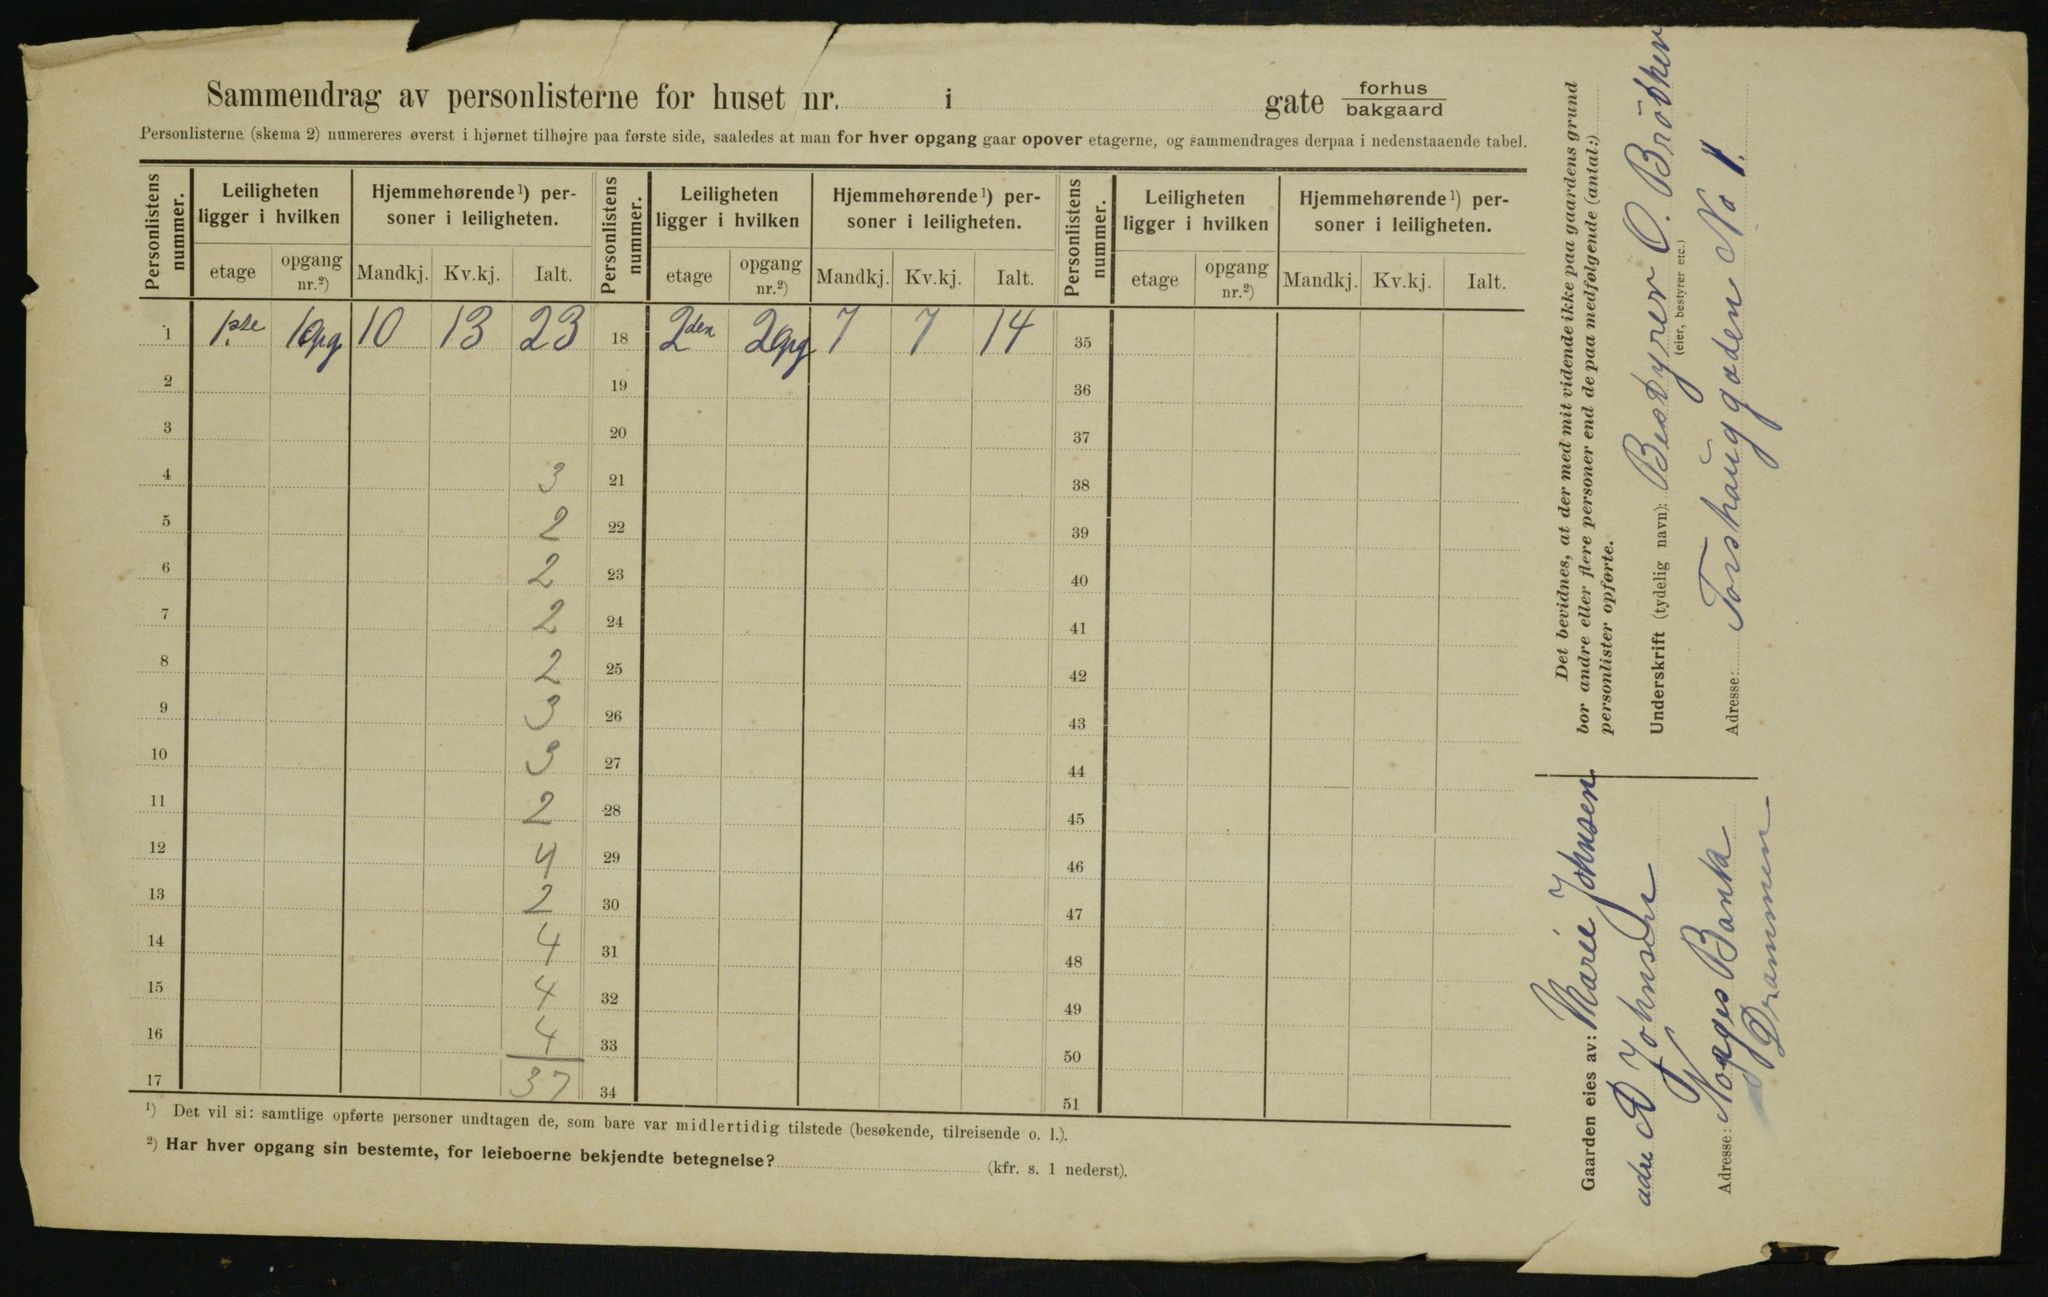 Sammendrag av personlisterne for huset nr. i gate forhus bakgaard
Personlisterne (skema 2) numereres øverst i hjørnet tilhøjre paa første side, saaledes at man for hver opgang gaar opover etagerne, og sammendrages derpaa i nedenstaaende tabel.
Personlistens nummer. Leiligheten ligger i hvilken Hjemmehørende 1) personer i leiligheten. Personlistens nummer. Leiligheten ligger i hvilken Hjemmehørende 1) personer i leiligheten. Personlistens nummer. Leiligheten ligger i hvilken Hjemmehørende 1) personer i leiligheten.
etage opgang nr.2) Mandkj. Kv.kj. Ialt. etage opgang nr.2) Mandkj. Kv.kj. Ialt. etage opgang nr.2) Mandkj. Kv.kj. Ialt.
1 1.ste 1 opg 10 13 23 18 2den 2 opg 7 7 14 35
2 19 36
3 20 37
4 3 21 38
5 2 22 39
6 2 23 40
7 2 24 41
8 2 25 42
9 3 26 43
10 3 27 44
11 2 28 45
12 4 29 46
13 2 30 47
14 4 31 48
15 4 32 49
16 4 33 50
17 37 34 51
1) Det vil si: samtlige opførte personer undtagen de, som bare var midlertidig tilstede (besøkende, tilreisende o. l.).
2) Har hver opgang sin bestemte, for leieboerne bekjendte betegnelse? (kfr. s. 1 nederst).
Det bevidnes, at der med mit vidende ikke paa gaardens grund
bor andre eller flere personer end de paa medfølgende (antal:)
personlister opførte.
Underskrift (tydelig navn): Bestyrer O.
(eier, bestyrer etc.)
Adresse: Torshauggaden No 1.
Gaarden eies av: Marie Johnsen
Johnsen
Adresse: Norges Bank
Drammen